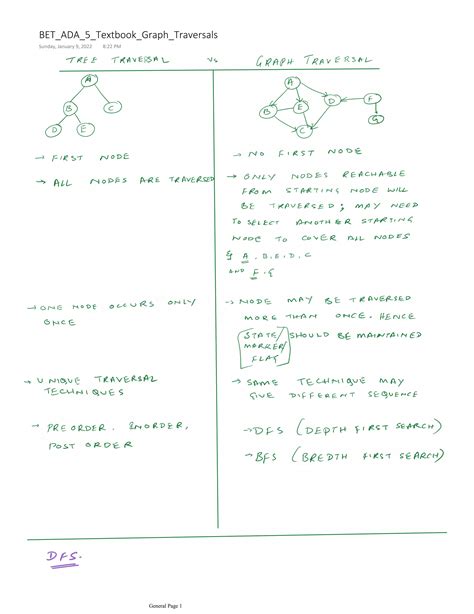 BET_ADA_5_Textbook_Graph_Traversals
Sunday, January 9, 2022 8:22 PM
TREE TRAVERSAL Vs GRAPH TRAVERSAL
A
B C
D E
A
B E D F
C G
→ FIRST NODE
→ ALL NODES ARE TRAVERSED
→ ONE NODE OCCURS ONLY
ONCE
→ UNIQUE TRAVERSAL
TECHNIQUES
→ PREORDER, INORDER,
POST ORDER
→ NO FIRST NODE
→ ONLY NODES REACHABLE
FROM STARTING NODE WILL
BE TRAVERSED; MAY NEED
TO SELECT ANOTHER STARTING
NODE TO COVER ALL NODES
A, B, E, D, C
AND F, G
→ NODE MAY BE TRAVERSED
MORE THAN ONCE. HENCE
STATE/ SHOULD BE MAINTAINED
MARKER/
FLAG
→ SAME TECHNIQUE MAY
GIVE DIFFERENT SEQUENCE
→ DFS (DEPTH FIRST SEARCH)
→ BFS (BREDTH FIRST SEARCH)
DFS.
General Page 1